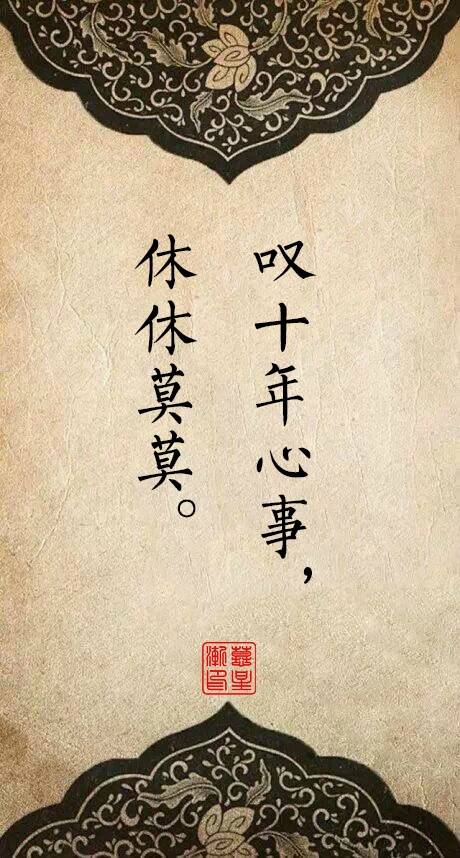 叹十年心事，
休休莫莫。